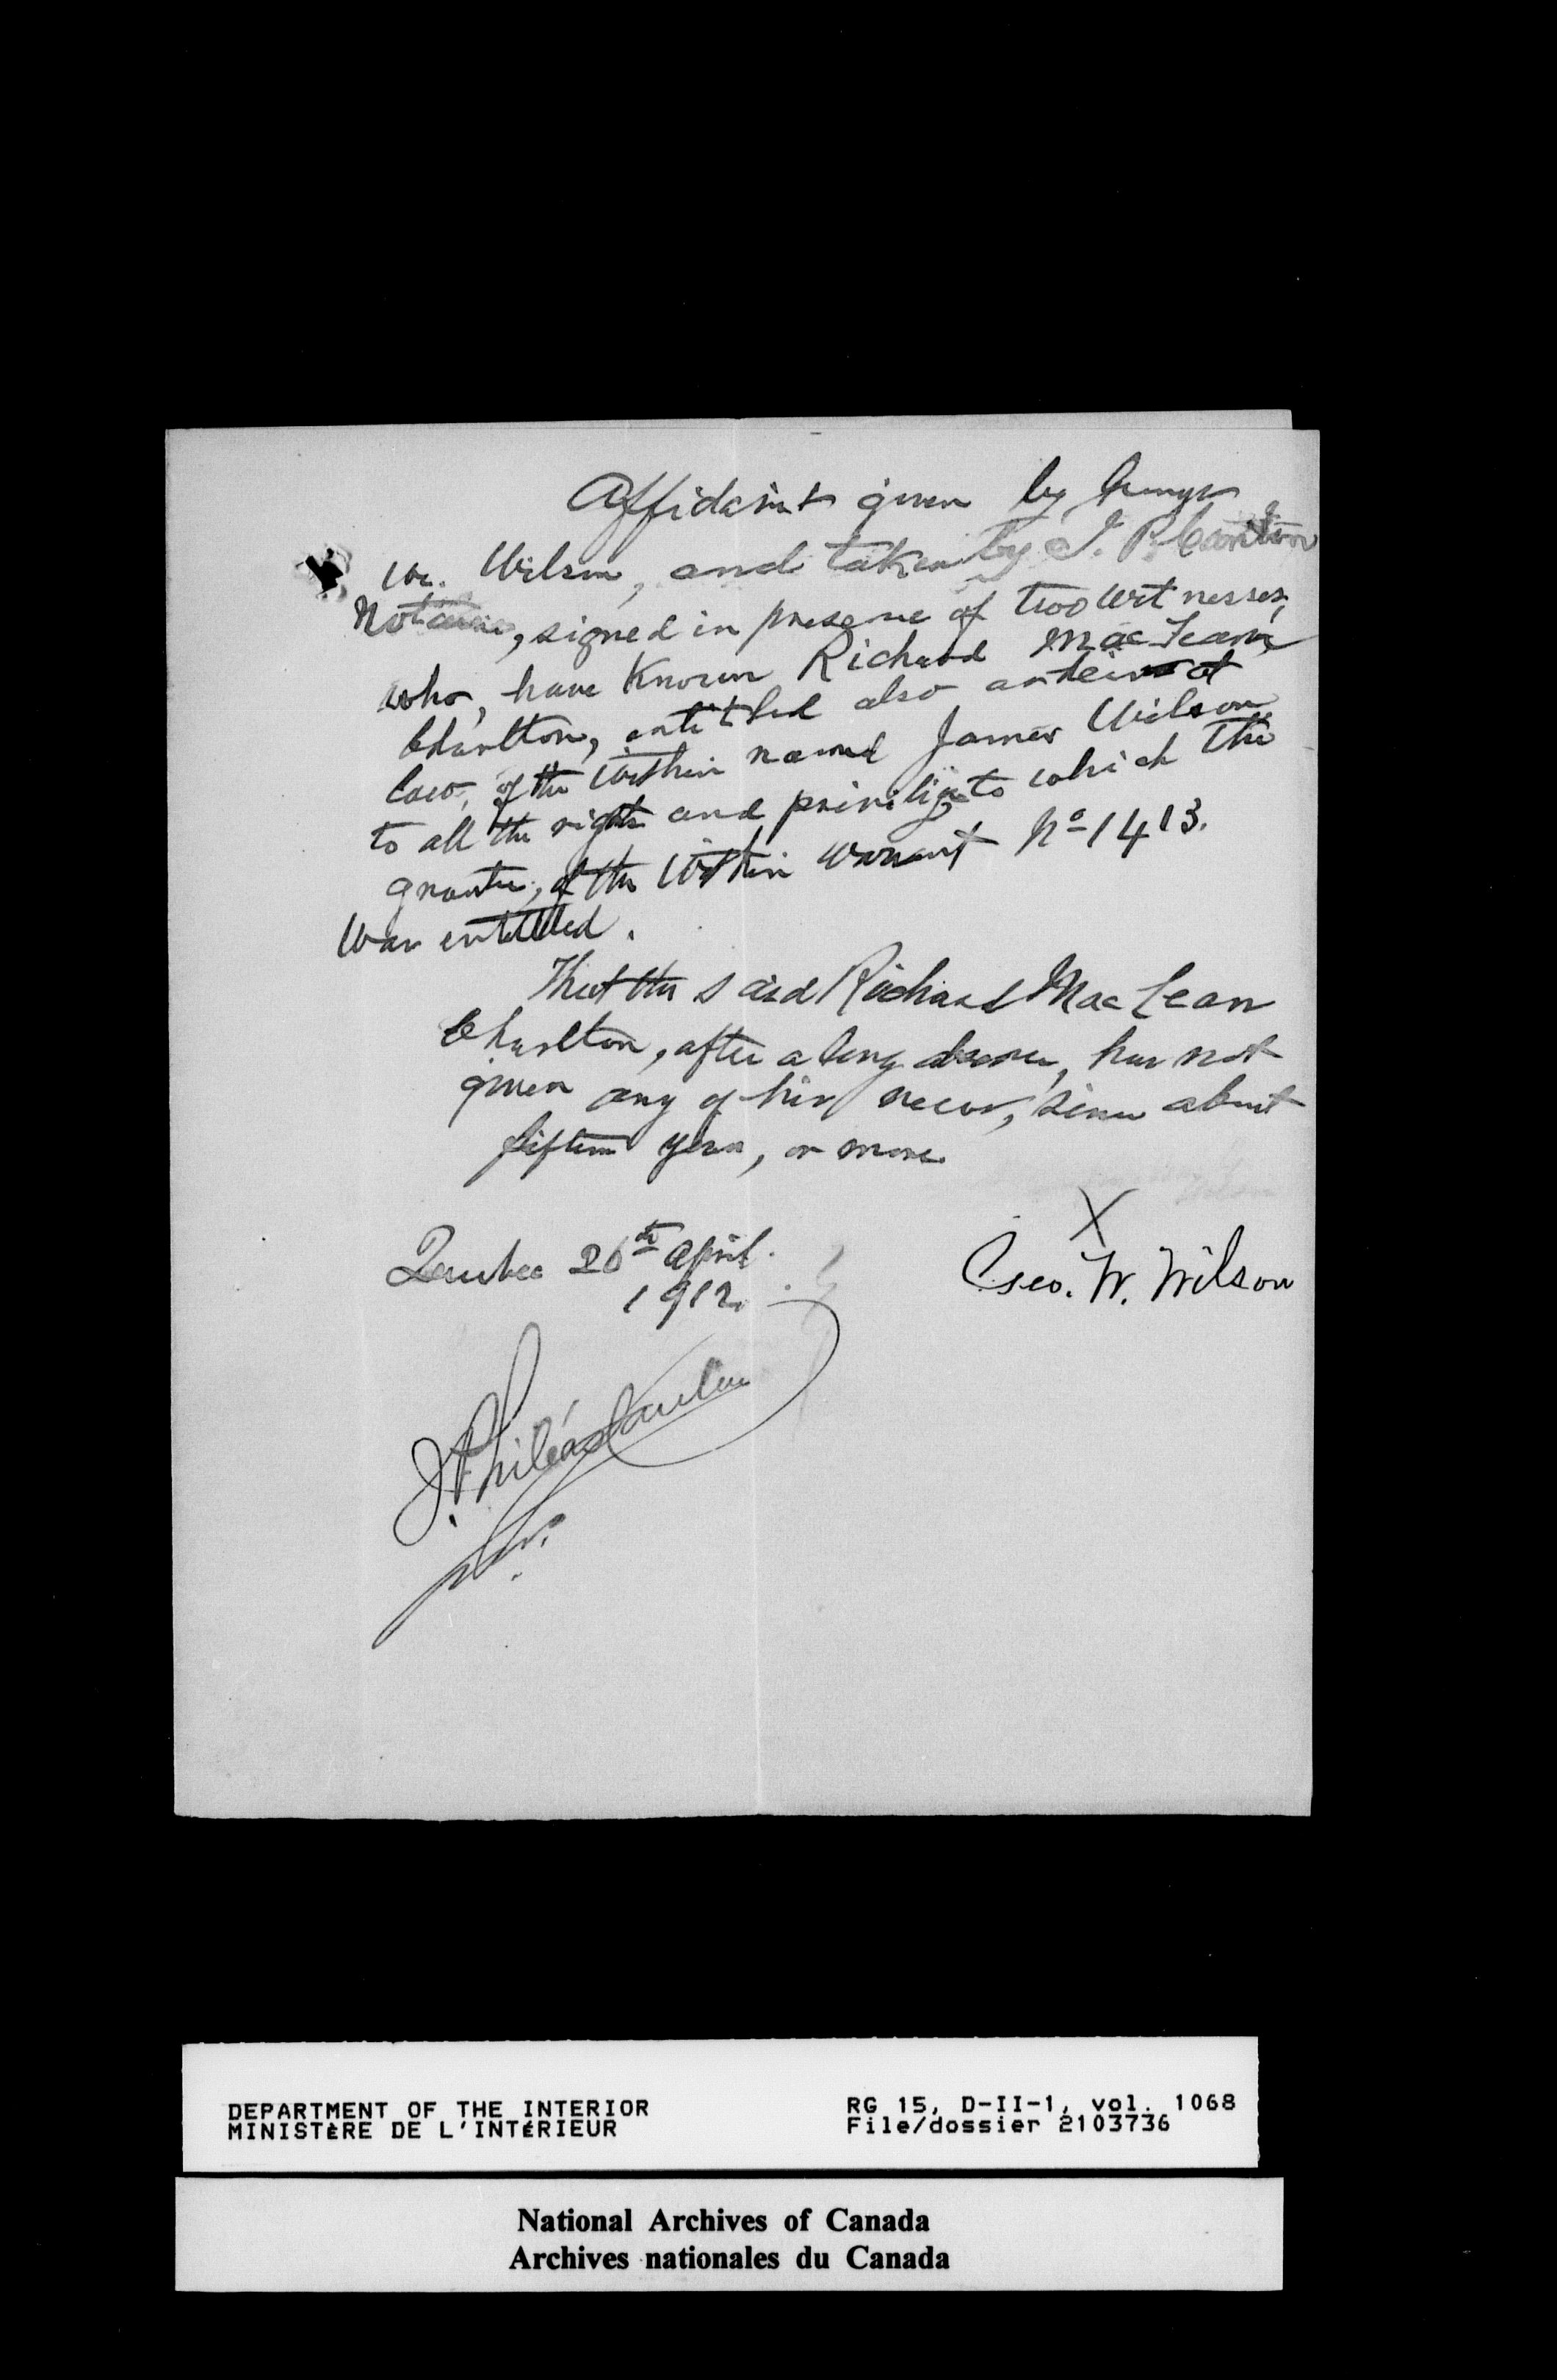 Affidavit given by George
W. Wilson, and taken by J. P. Cantin
Notaire, signed in presence of two witnesses,
who, have Known Richard MacLean,
Charlton, entitled also as heir at
law, of the within named James Wilson
to all the rights and privilige to which the
grantee, of the within warrant No 1413.
was entitled.
That the said Richard MacLean
Charlton, after a long absence, has not
given any of his news, since about
fifteen years, or more.
Quebec 26th April.
1912.
X
Geo. W. Wilson
J. Philéas Cantin
DEPARTMENT OF THE INTERIOR
MINISTÈRE DE L'INTÉRIEUR
RG 15, D-II-1, vol. 1068
File/dossier 2103736
National Archives of Canada
Archives nationales du Canada